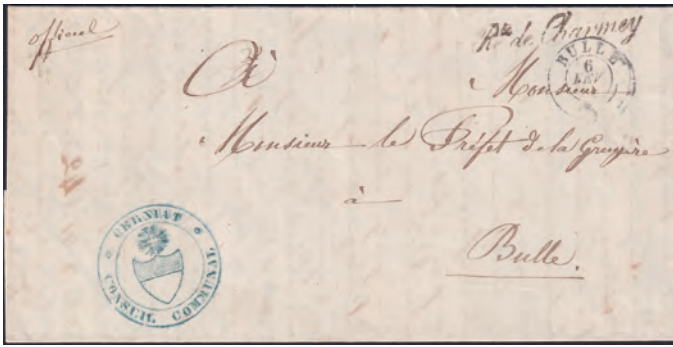 officiel
Rte de Charmey
BULLE
6
À
Monsieur
Monsieur le Préfet de la Gruyère
à
Bulle.
CERNIAT
CONSEIL COMMUNAL